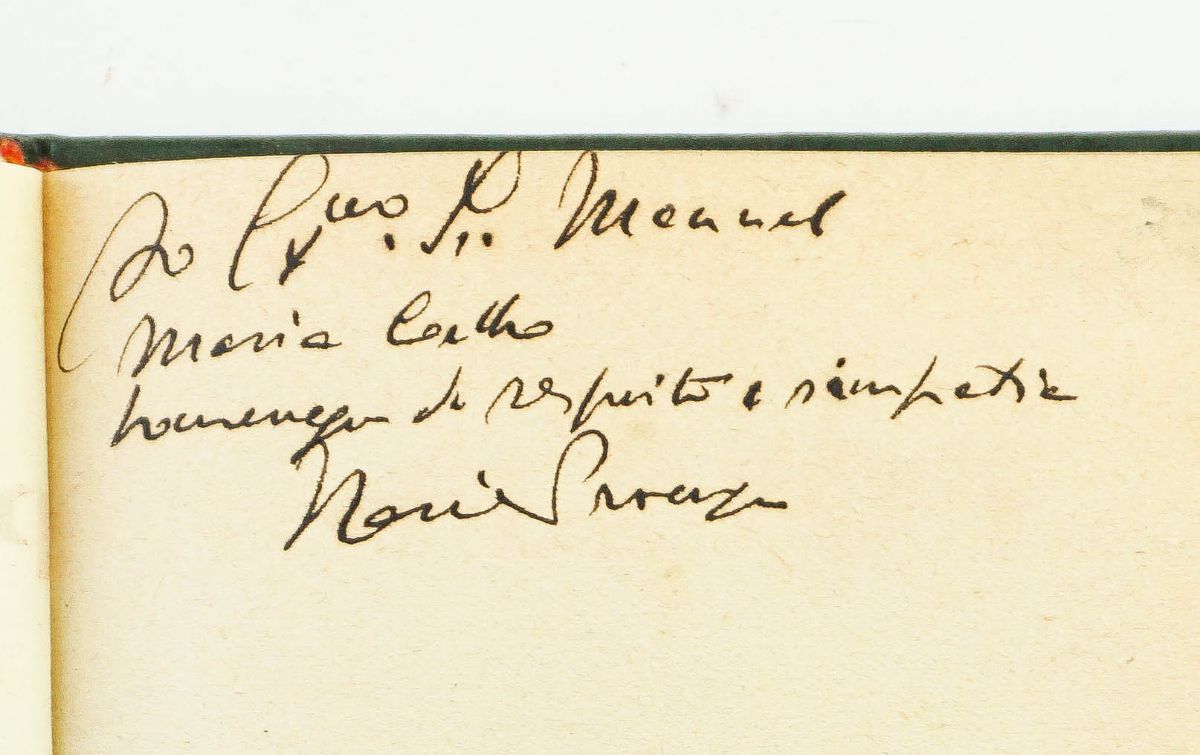 Ao Exmo. Sr. Manuel
Maria Coelho
homenagem de respeito e simpatia
Maria Proença